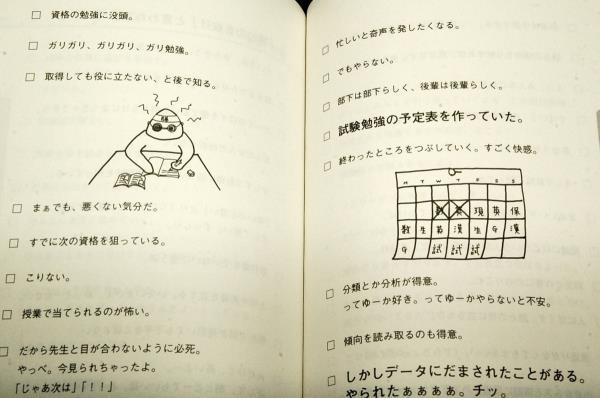 □ 資格の勉強に没頭。
□ ガリガリ、ガリガリ、ガリ勉強。
□ 取得しても役に立たない、と後で知る。
□ まぁでも、悪くない気分だ。
□ すでに次の資格を狙っている。
□ こりない。
□ 授業で当てられるのが怖い。
□ だから先生と目が合わないように必死。
やっべ。今見られちゃったよ。
「じゃあ次は」「!!」
□ 忙しいと奇声を発したくなる。
□ でもやらない。
□ 部下は部下らしく、後輩は後輩らしく。
□ 試験勉強の予定表を作っていた。
□ 終わったところをつぶしていく。すごく快感。
M T W T F S S
数 英 現 英 保
数 生 英 漢 生 G 漢
G 試 試 試
□ 分類とか分析が得意。
ってゆーか好き。ってゆーかやらないと不安。
□ 傾向を読み取るのも得意。
□ しかしデータにだまされたことがある。
やられたぁぁぁぁ。チッ。